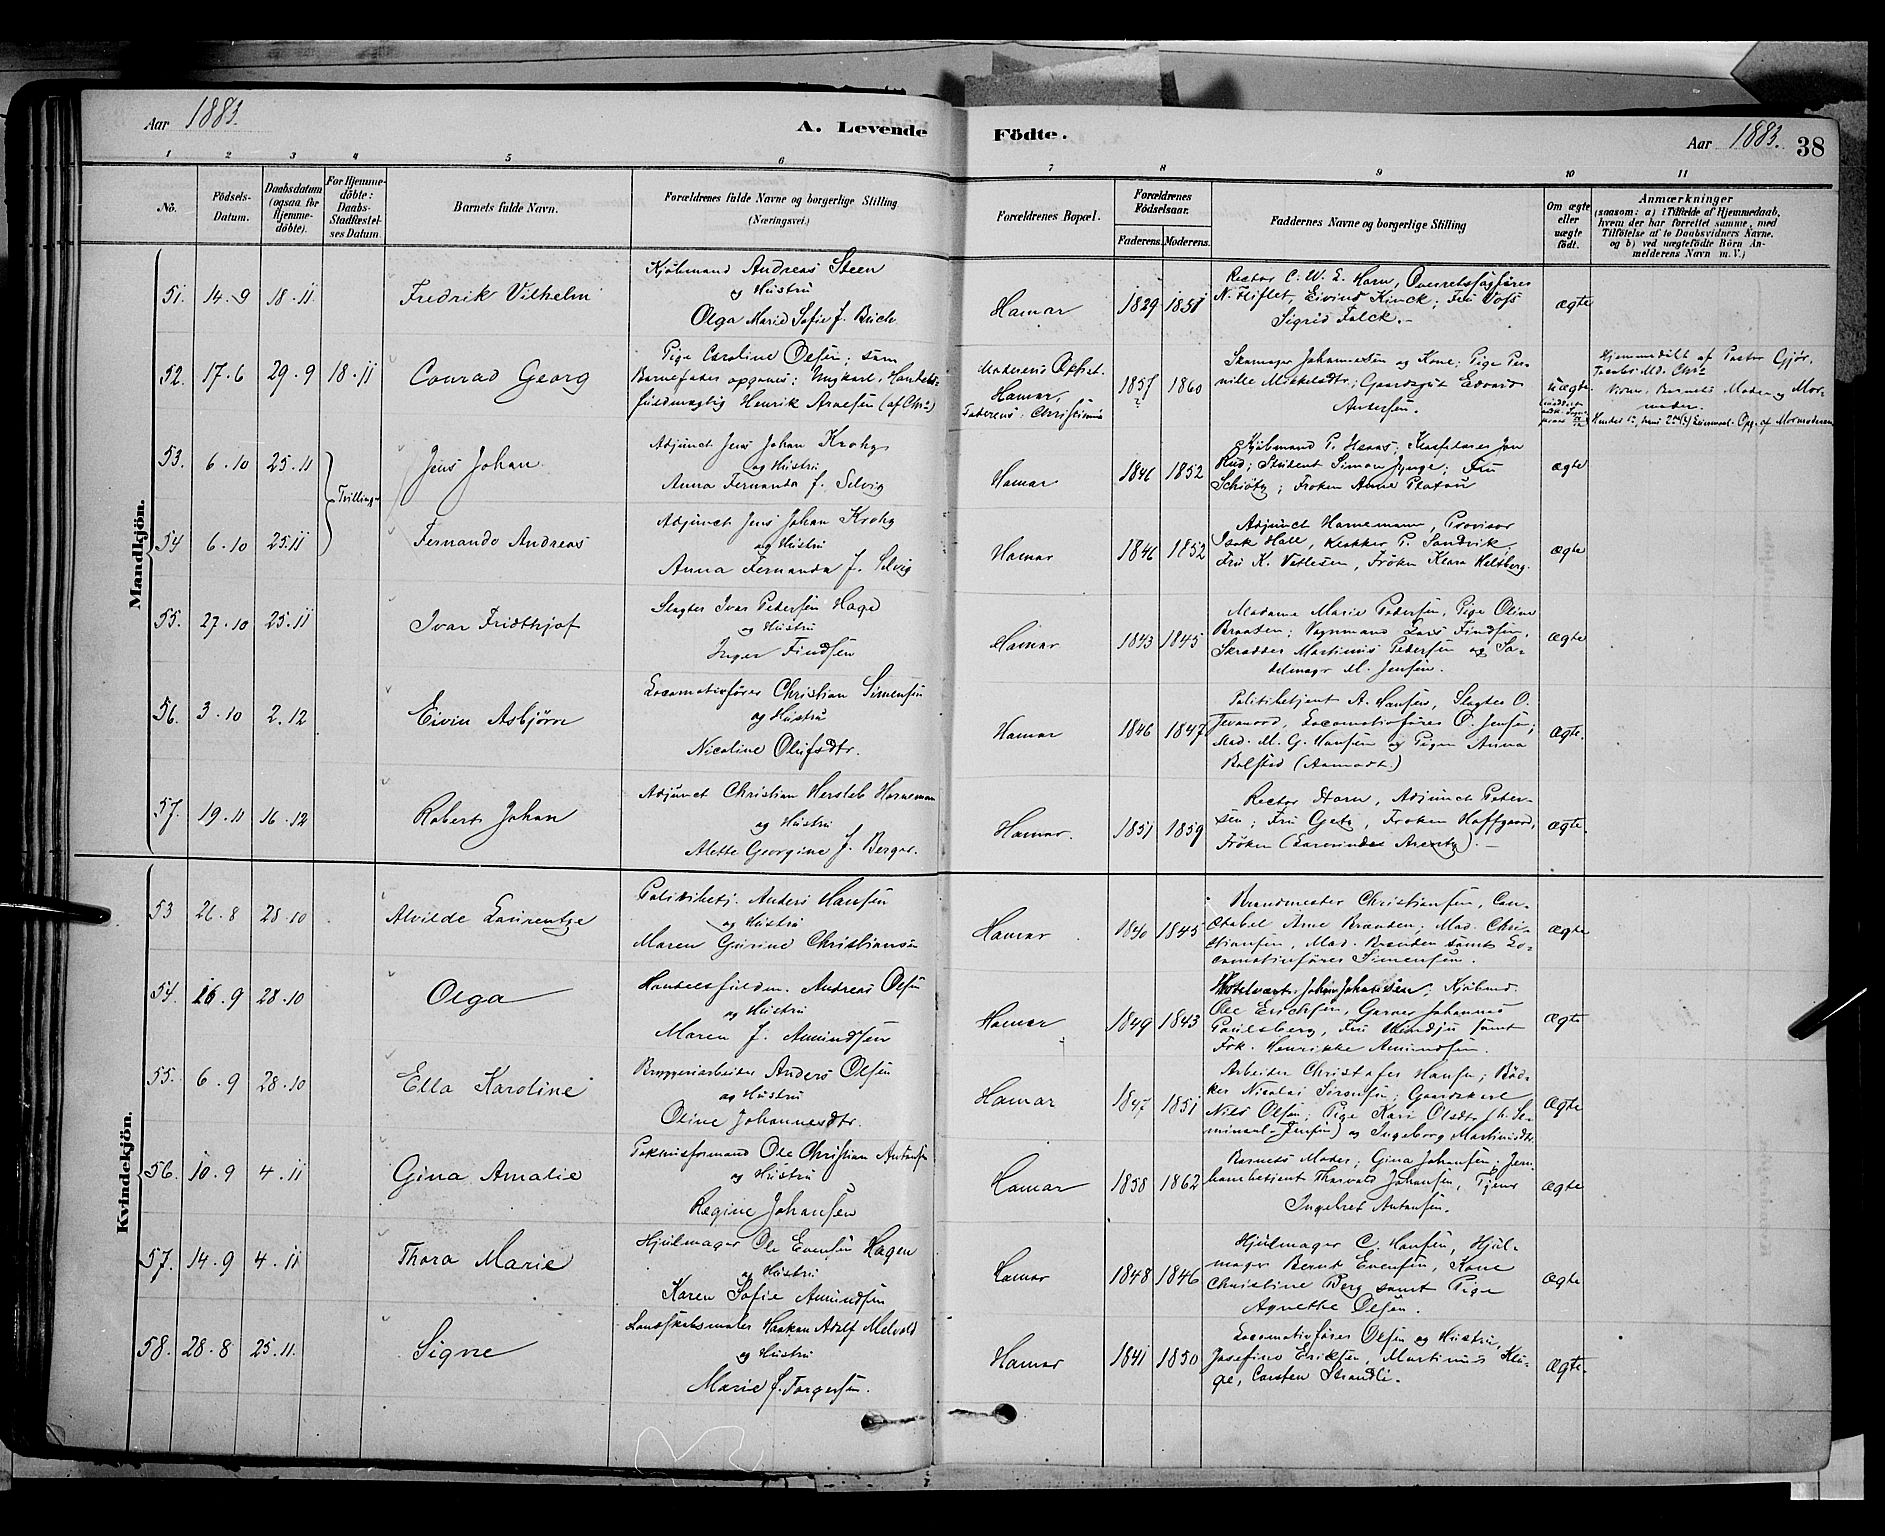 Aar 1883.
A. Levende Födte.
Aar 1883. 38
1 2 3 4 5 6 7 8 9 10 11
No.
Födsels-
Datum.
Daabsdatum
(ogsaa for
Hjemme-
döbte).
For Hjemme-
döbte:
Daabs-
Stadfæstel-
ses Datum.
Barnets fulde Navn.
Forældrenes fulde Navne og borgerlige Stilling
(Næringsvei).
Forældrenes Bopæl.
Forældrenes
Födselsaar.
Faderens. Moderens.
Faddernes Navne og borgerlige Stilling
Om ægte
eller
uægte
født.
Anmærkninger
(saasom: a) i Tilfælde af Hjemmedaab,
hvem der har forrettet samme, med
Tilföielse af to Daabsvidners Navne,
og b) ved uægtefödte Börn An-
melderens Navn m. V.)
Mandkjön.
51. 14.9 18.11 Fredrik Vilhelm
Kjøbmand Andreas Steen
og Hustru
Olga Marie Sofie f. Buch
Hamar 1829 1851
Rector C. W. E. Horn, Overretssagfører
N. Fliflet, Eivind Kinck; Fru Voss
Sigrid Falck.
ægte
52. 17.6 29.9 18.11 Conrad Georg
Pige Caroline Olsen; som
Barnefader opgives: Ungkarl, Handels-
fuldmægtig Henrik Arnesen (af Chra)
Moderens Opst.
Hamar,
Faderens: Christiania
1857 1860
Skomager Johannesen og Kone; Pige Per-
nille Mikkelsdtr; Gaardsgut Edvard
Andersen.
uægte
Hjemmedøbt af Pastor Gjør,
Chra
Vidner: Barnets Moder og Mor-
moder.
Hendes 1ste, hans 2det Leiermaal. Opg. af Mormoderen
53. 6.10 25.11 Tvillinger Jens Johan
Adjunct Jens Johan Krohg
og Hustru
Anna Fernanda f. Selvig
Hamar 1846 1852
Kjøbmand P. Henas; Jon
Rud; Student Simon Jynge; Fru
Schiøtz; Frøken Anne Platou
ægte
54 6.10 25.11 Fernando Andreas
Adjunct Jens Johan Krohg
og Hustru
Anna Fernanda f. Selvig
Hamar 1846 1852
Adjunct Hornemann, Provisor
Isak Hall, Klokker P. Sandvik,
Fru K. Vetlesen, Frøken Klara Helsberg.
ægte
55. 27.10 25.11 Ivar Fridthjof
Slagter Ivar Pedersen Hage
og Hustru
Inger Findsen
Hamar 1843 1845
Madame Marie Pedersen, Pige Oline
Braaten; Vognmand Lars Findsen,
Skrædder Martinus Pedersen og Sa-
delmagr M. Jensen.
ægte
56. 3.10 2.12 Eivin Asbjørn
Locomotivfører Christian Simensen
og Hustru
Nicoline Olufsdtr.
Hamar 1846 1847
Politibetjent A. Hansen, Slagter O.
Locomotivfører O. Jensen;
Mad. M. G. Hansen og Pigen Anna
Bolstad (Aamodt.)
ægte.
57. 19.11 16.12 Robert Johan
Adjunct Christian Hersleb Horneman
og Hustru
Alette Georgine f. Berger.
Hamar. 1851 1859
Rector Horn, Adjunct Peter-
sen; Fru Getz, Frøken Hoffgaard,
Frøken Arentz).
ægte.
Kvindekjön.
53 26.8 28.10 Alvilde Laurentze
Politibetj. Anders Hansen
og Hustru
Maren Gurine Christiansen
Hamar 1840 1845
Brandmester Christiansen, Con-
stabel Arne Braaten; Mad. Chri-
stiansen, Mad. Braaten samt Lo-
comotivfører Simensen.
ægte
54. 16.9 28.10 Olga
Handelsfuldm. Andreas Olsen
og Hustru
Maren f. Amundsen
Hamar 1849 1843
Hotelvært Johan Johansen, Kjøbmd.
Ole Erichsen, Garver Johannes
Paulsberg, Fru samt
Frk. Henrikke Amundsen.
Ægte
55. 6.9 28.10 Ella Karoline
Bryggeriarbeider Anders Olsen
og Hustru
Oline Johannesdtr.
Hamar 1847 1851
Arbeider Christofer Hansen; Bød-
ker Nicolai Sørensen; Gaardskarl
Nils Olsen; Pige Kari Olsdtr. (h. Se-
minarl. Jensen) og Ingeborg Martinsdtr
Ægte
56. 10.9 4.11 Gina Amalie
Pakhusformand Ole Christian Antonsen
og Hustru
Regine Johansen
Hamar 1858 1862
Barnets Moder; Gina Johansen; Jern-
banebetjent Thorvald Johansen, Tjener
Ingebret Antonsen.
Ægte
57. 14.9 4.11 Thora Marie
Hjulmager Ole Evensen Hagen
og Hustru
Karen Sofie Amundsen
Hamar 1848 1846
Hjulmager C. Hansen, Hjul-
mager Bernt Evensen, Kone
Christine Berg samt Pige
Agnethe Olsen.
Ægte
58. 28.8 25.11. Signe
Landskabsmaler Haakon Adolf Melvold
og Hustru
Marie f. Torgersen.
Hamar 1841 1850
Locomotivfører Olsen og Hustru,
Josefine Eriksen, Martinus Klu-
ge, Carsten Strandli.
Ægte